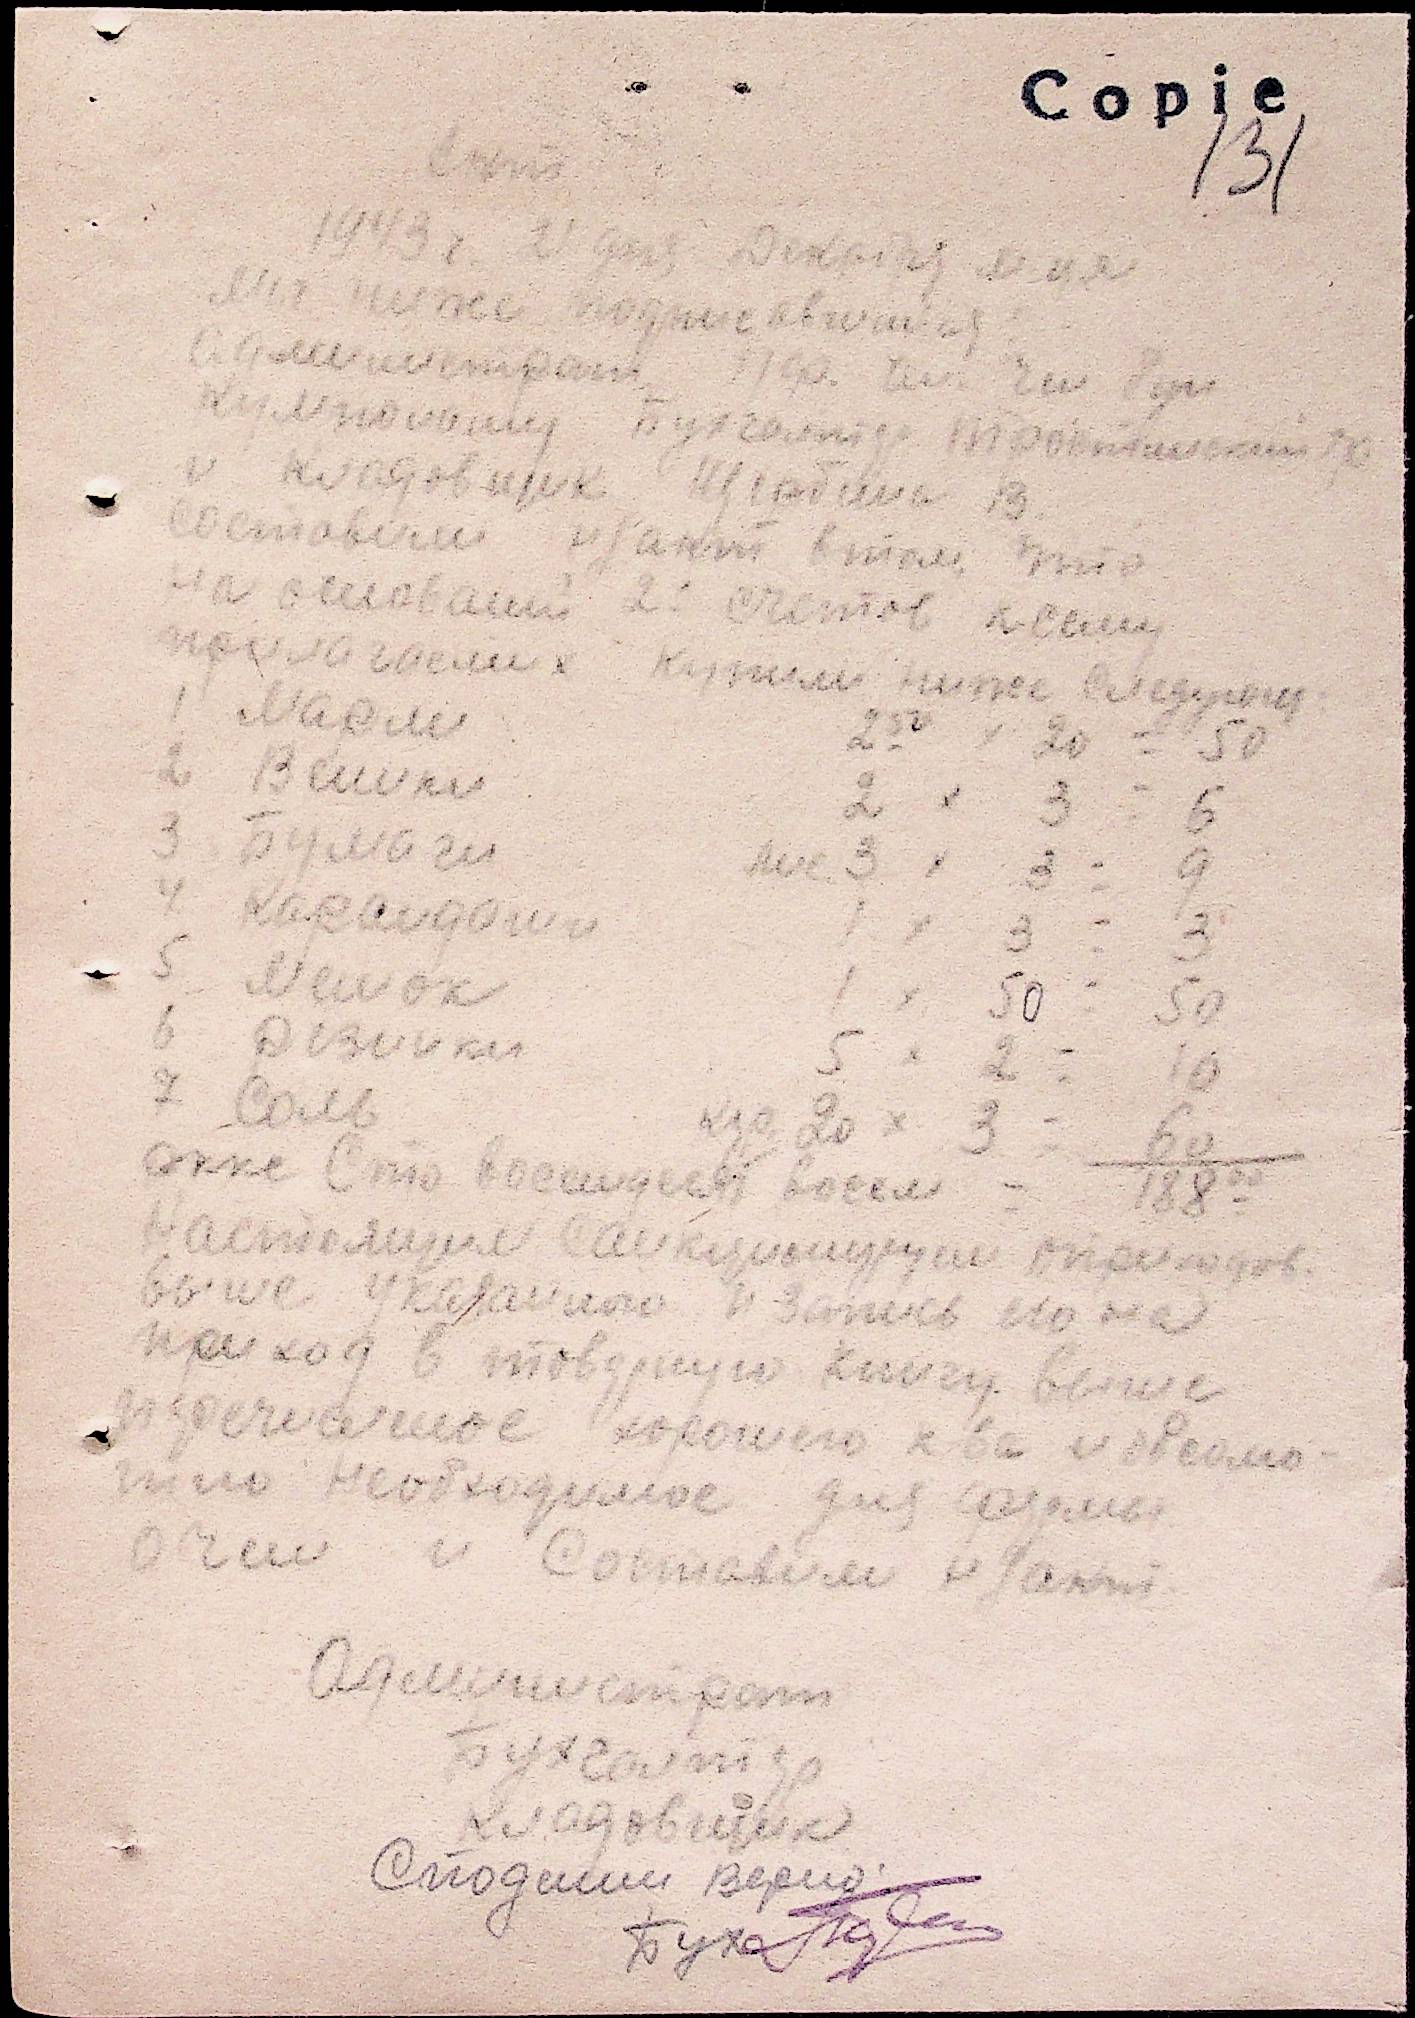 Copie
131
Акт
1943 г. 2 дня Декабря м-ця
мы ниже подписавшийся:
Администрат
Бухгалтер
и кладовщик В.
составили акт втом, что
на оснований 2: счетов ксему
прилагаемых купили ниже следующ:
1 Марли 2 50 x 20 = 50
2 Веники 2 x 3 = 6
3 Бумаги лис. 3 x 3 = 9
4 Карандаши 1 x 3 = 3
5 Мешок 1 x 50 = 50
6 Резинки 5 x 2 = 10
7 Соль кгр 20 x 3 = 60
Сто восемдесят восем = 188 00
Настоящим опрыходов.
выше указаного и запись его на
приход в товарную книгу выше
хорошего к-ва и
необходимое для фермы
о чем и составили акт.
Администрат
Бухгалтер
кладовщик
Сподлиним верно:
Бух